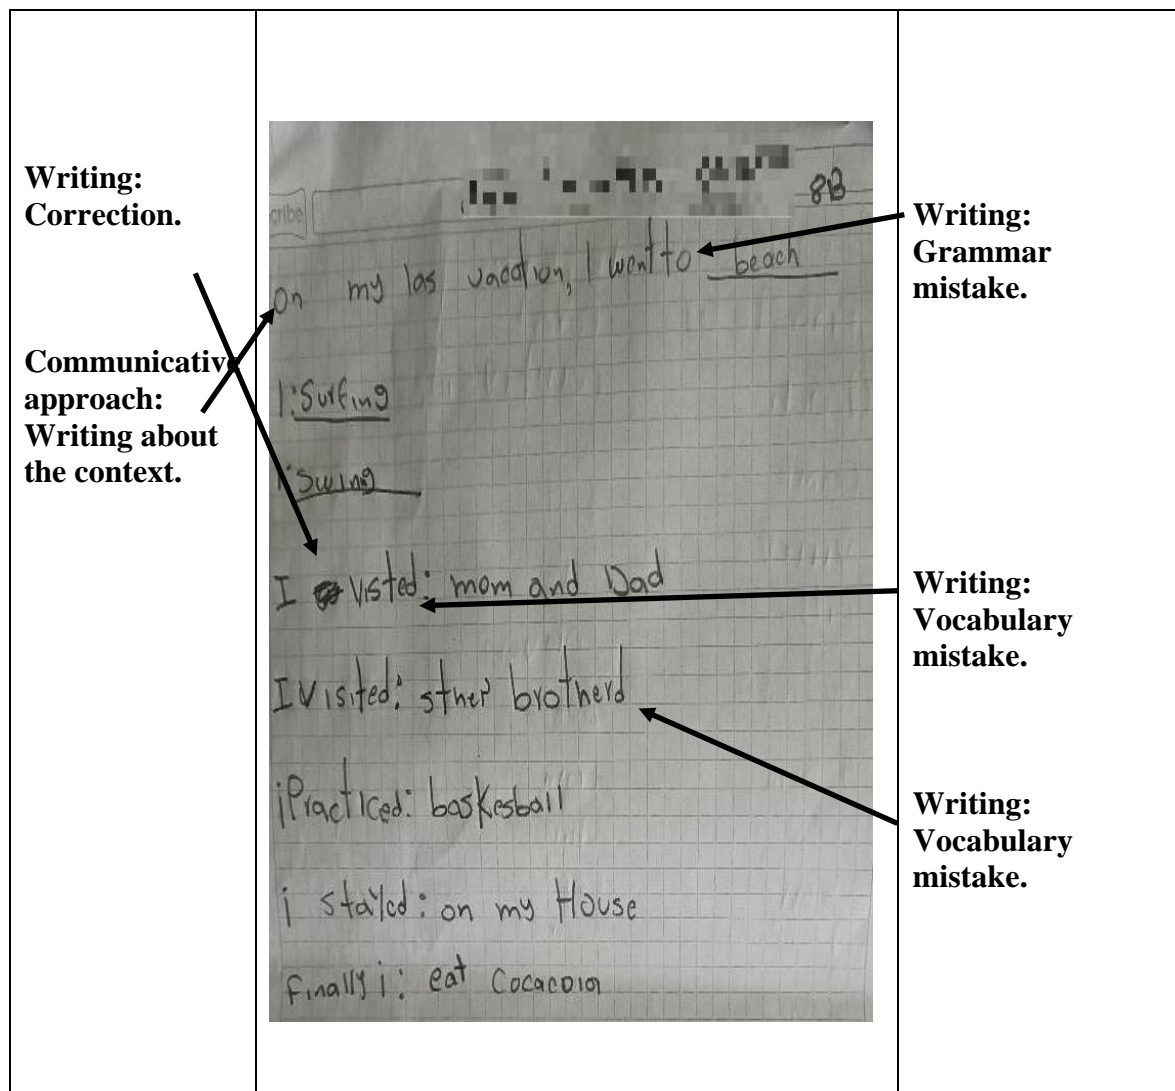 Writing:
Correction.
Communicative
approach:
Writing about
the context.
cribe
8B
On my las vacation, I went to beach
I: Surfing
I: Swing
I visted: mom and Dad
I visited: sther brotherd
iPracticed: baskesball
i stayed: on my House
Finally i: eat Cocacola
Writing:
Grammar
mistake.
Writing:
Vocabulary
mistake.
Writing:
Vocabulary
mistake.